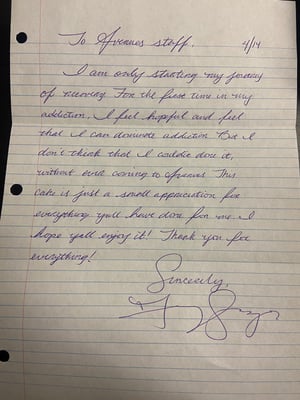 To Avenues staff. 4/14
I am only starting my journey
of recovery For the first time in my
addiction. I feel hopeful and feel
that I can dominate addiction But I
don't think that I could've done it,
without ever coming to Avenues This
cake is just a small appreciation for
everything y'all have done for me I
hope y'all enjoy it! Thank you for
everything!
Sincerely,